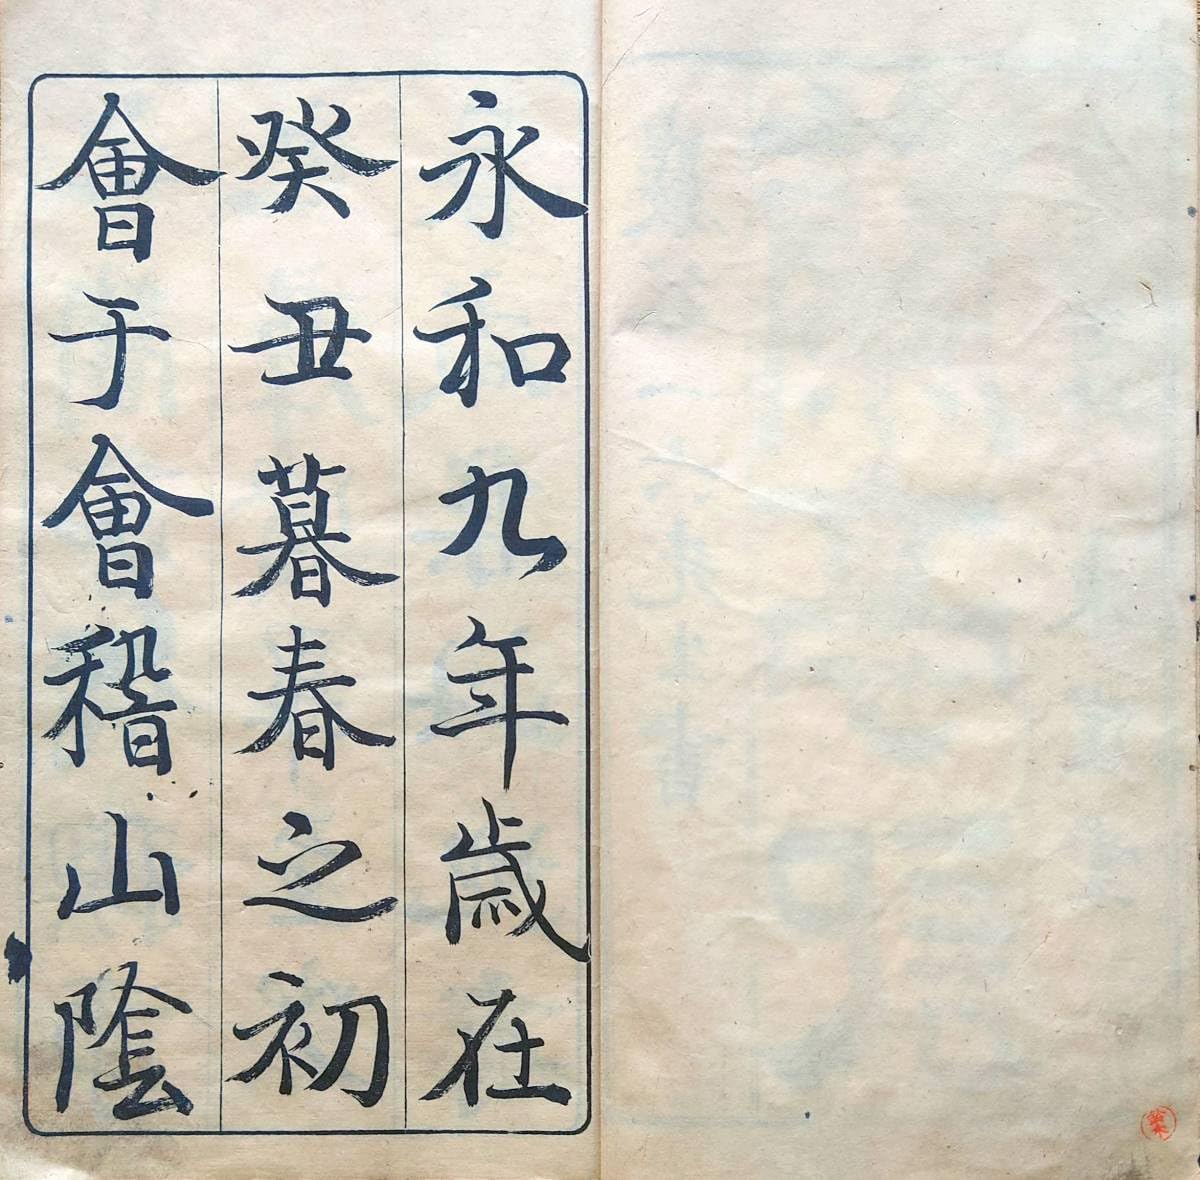 永和九年歲在
癸丑暮春之初
會于會稽山陰